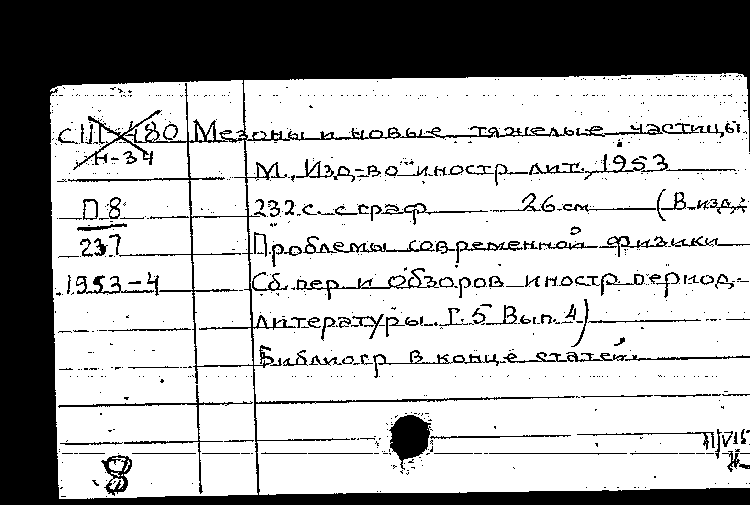 СIII-480 Мезоны и новые тяжелые частицы
Н-34
М., Изд-во иностр лит., 1953
П 8 232 с. с граф. 26 см (В изд.:
237 Проблемы современной физики
1953-4 Сб. пер и обзоров иностр период.
литературы. Г. 5 Вып. 4)
Библиогр в конце статей.
8